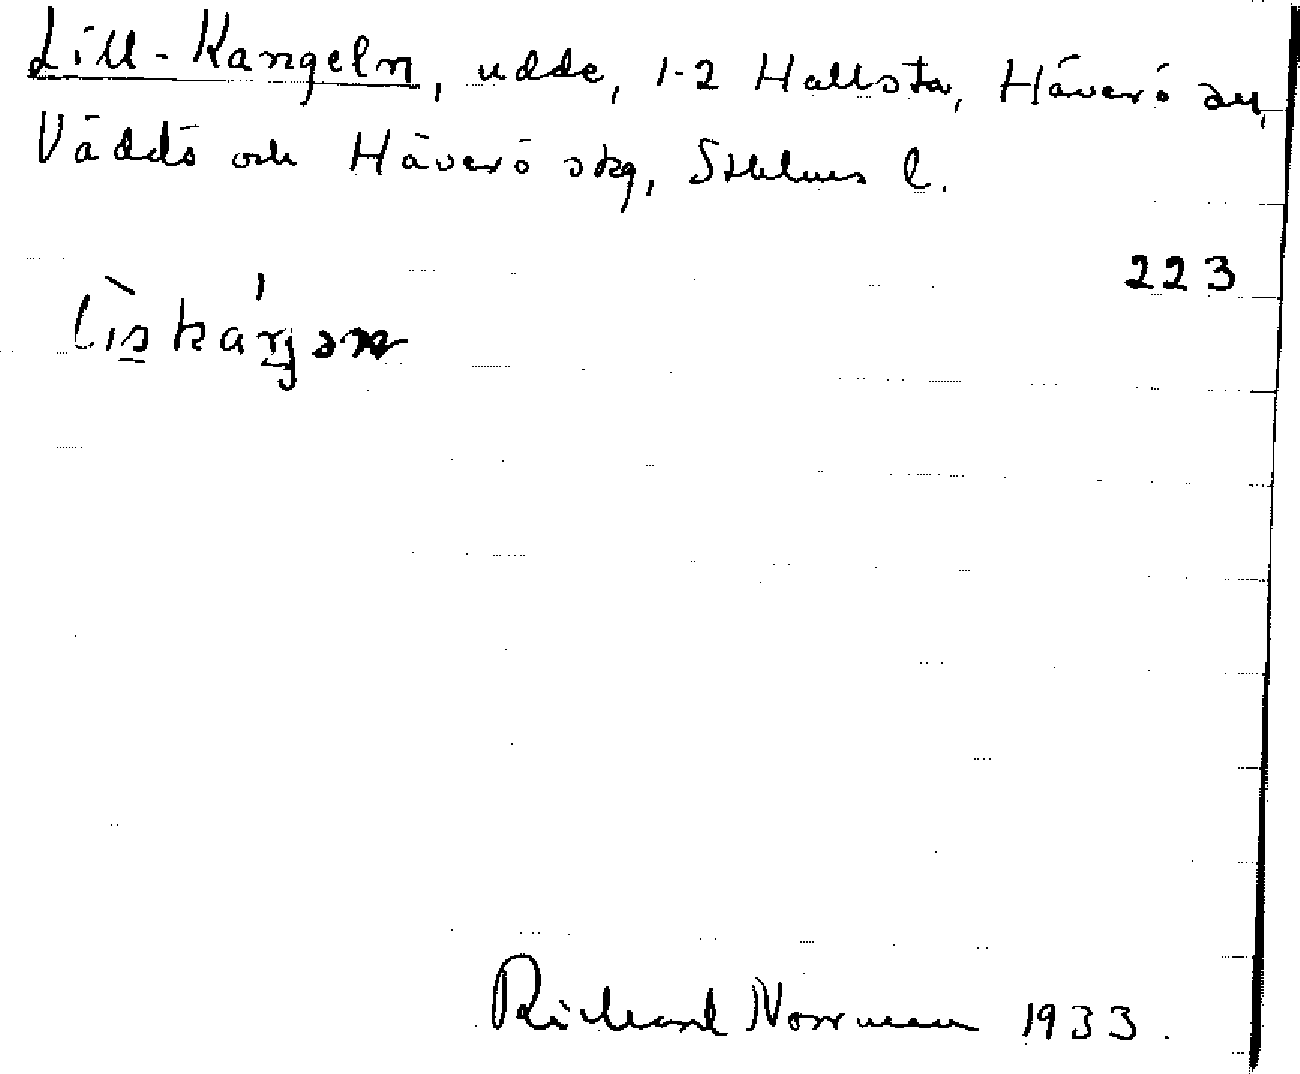 Lill-Kangeln, udde, 1-2 Hallsta, Häverö sn,
Väddö och Häverö skg, Sthlms l.
223
Richard Norrman 1933.